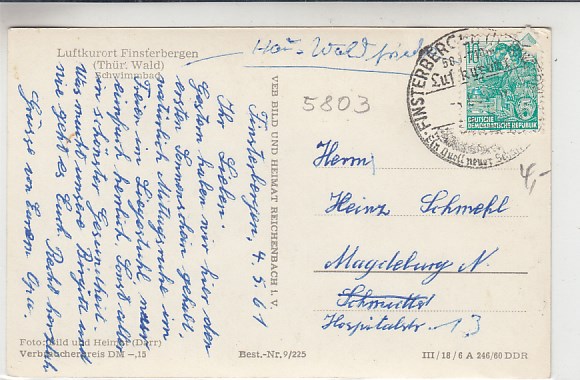 Luftkurort Finsterbergen
(Thür. Wald)
Schwimmbad
Finsterbergen, 4.5.61
Ihr Lieben.
Gestern haben wir hier den
ersten Sonnenschein gehabt,
natürlich Mittagsruhe im
Freien im Liegestuhl
einfach herrlich. Sonst alles
in schönster Gesundheit.
Was macht unsere Brigitt und
wie geht es Euch. Recht herzlich
Grüsse von Eurem Opa.
Foto: Bild und Heimat (Dörr)
Verbraucherpreis DM -,15
Best.-Nr. 9/225
VEB BILD UND HEIMAT REICHENBACH i. V.
5803
FINSTERBERGEN
10
DEUTSCHE
DEMOKRATISCHE REPUBLIK
4,-
Herrn
Heinz Schmehl
Magdeburg N.
Hospitalstr. 13
III/18/6 A 246/60 DDR